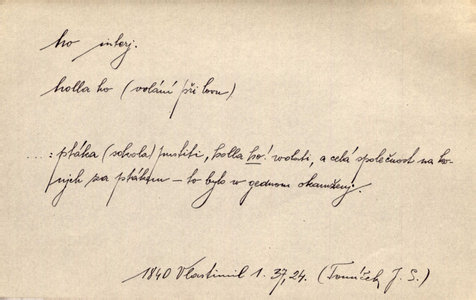 ho interj.
holla ho (volání při lovu)
....: ptáka (sokola) pustiti, holla ho! wolati, a celá společnost na ko-
njch za ptákem – to bylo w gednom okamženj.
1840 Vlastimil 1. 37,24. (Tomíček J. S.)